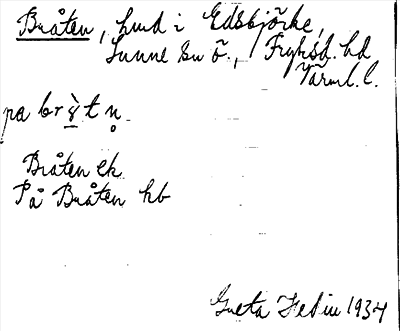 Bråten, hmd i Edsbjörke,
Sunne sn ö., Fryksd. hd
Värml. l.
pa br t n̥.
Bråten ek
På Bråten kb
Greta Hedin 1934